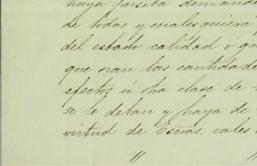 haya persiba demande
de todas y cualesquiera
del estado calidad ó qu
que sean las cantidade
efectos ú otra clase de
se le deban y haya de
virtud de Escras. vales
" "